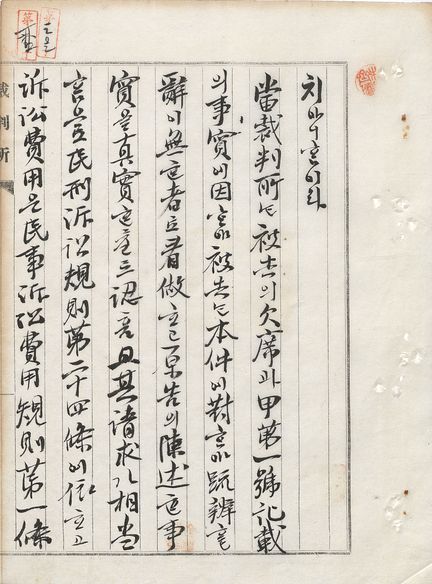 치아니홈이라
當裁判所는被告의欠席과甲第一號記載
의事實에因하야被告는本件에對하야疏辨할
辭이無한者로看做하고原告의陳述한事
實을真實한줄로認하고且其請求가相當
民刑訴訟規則第二十四條에依하고
訴訟費用은民事訴訟費用規則第一條
裁判所